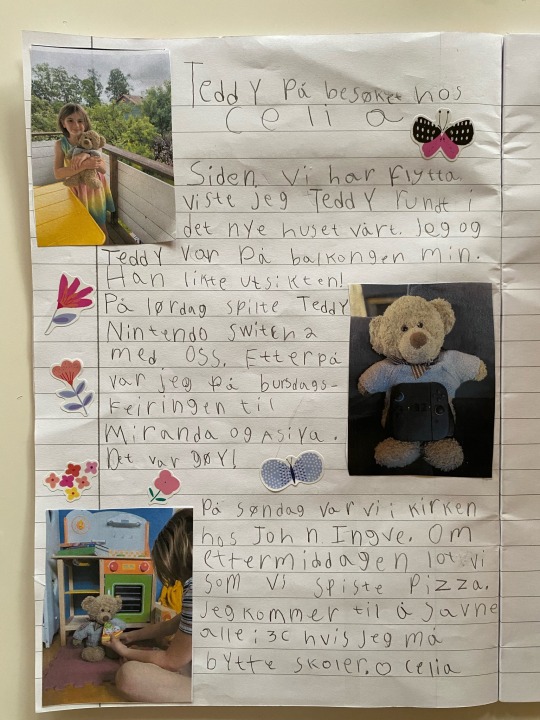 Teddy på besøket hos
Celia
Siden vi har flytta
viste jeg Teddy rundt i
det nye huset vårt. Jeg og
Teddy var på balkongen min.
Han likte utsikten!
På lørdag spilte Teddy
Nintendo Switch 2
med oss. Etterpå
var jeg på bursdags-
feiringen til
Miranda og Asiya.
Det var gøy!
På søndag var vi i kirken
hos John Ingve. Om
ettermiddagen lot vi
som vi spiste pizza.
Jeg kommer til å savne
alle i 3C hvis jeg må
bytte skoler. ♡ Celia